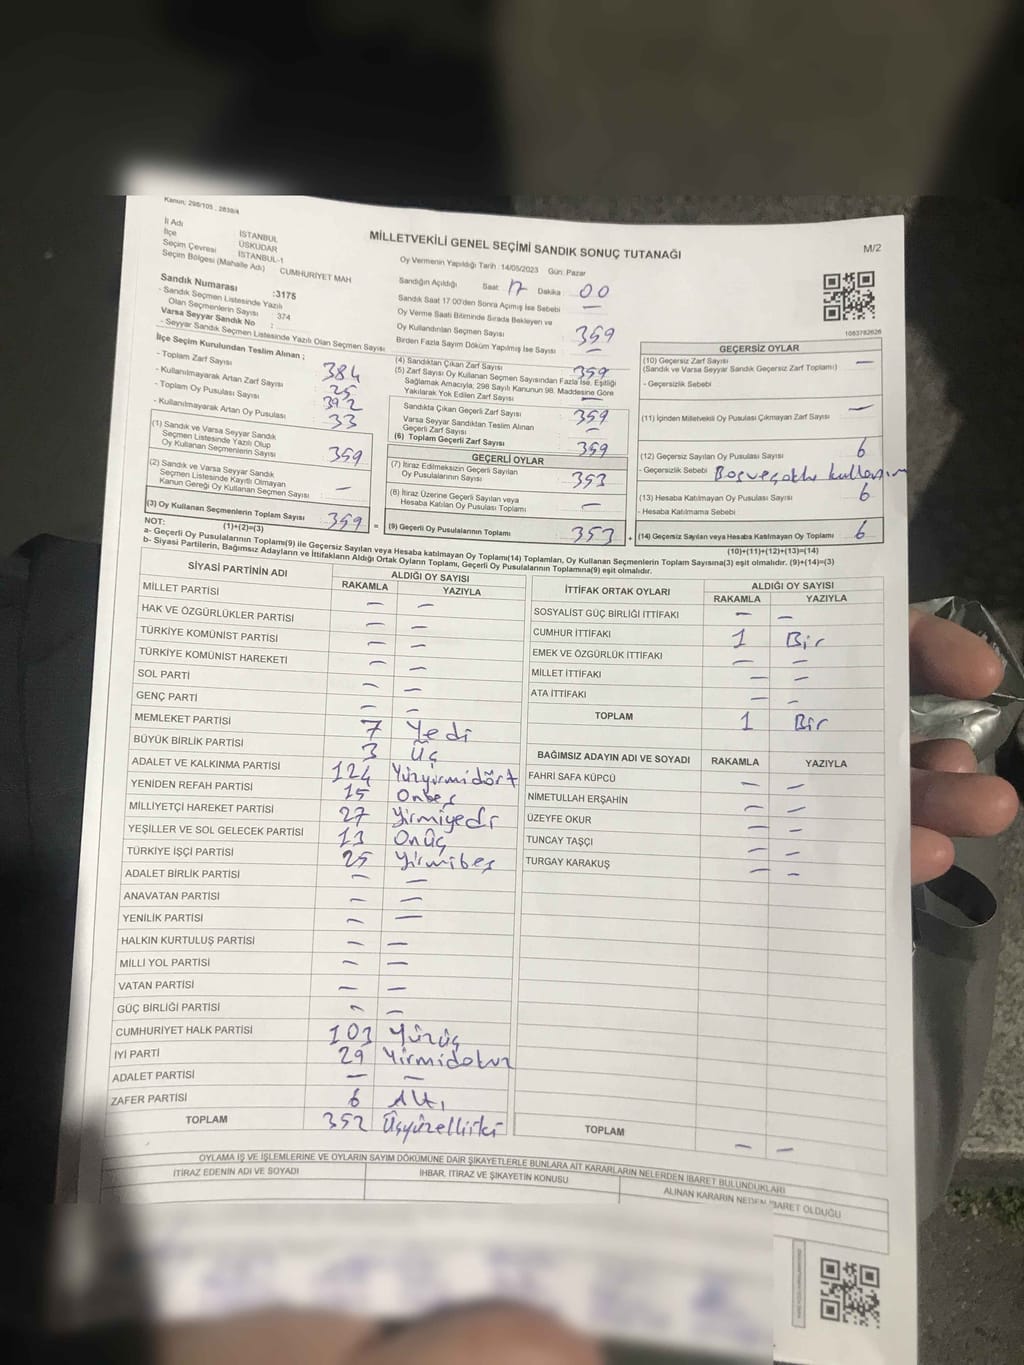 Kanun; 298/105 , 2839/4
MİLLETVEKİLİ GENEL SEÇİMİ SANDIK SONUÇ TUTANAĞI
M/2
İl Adı İSTANBUL
İlçe ÜSKÜDAR
Seçim Çevresi İSTANBUL-1
Seçim Bölgesi (Mahalle Adı) CUMHURİYET MAH
Sandık Numarası :3175
- Sandık Seçmen Listesinde Yazılı
Olan Seçmenlerin Sayısı 374
Varsa Seyyar Sandık No :
- Seyyar Sandık Seçmen Listesinde Yazılı Olan Seçmen Sayısı
Oy Vermenin Yapıldığı Tarih :14/05/2023 Gün: Pazar
Sandığın Açıldığı Saat: 17 Dakika : 00
Sandık Saat 17:00'den Sonra Açılmış İse Sebebi : —
Oy Verme Saati Bitiminde Sırada Bekleyen ve
Oy Kullandırılan Seçmen Sayısı : 359
Birden Fazla Sayım Döküm Yapılmış İse Sayısı : —
1063782626
İlçe Seçim Kurulundan Teslim Alınan ;
- Toplam Zarf Sayısı 384
- Kullanılmayarak Artan Zarf Sayısı 25
- Toplam Oy Pusulası Sayısı 392
- Kullanılmayarak Artan Oy Pusulası 33
(1) Sandık ve Varsa Seyyar Sandık
Seçmen Listesinde Yazılı Olup
Oy Kullanan Seçmenlerin Sayısı 359
(2) Sandık ve Varsa Seyyar Sandık
Seçmen Listesinde Kayıtlı Olmayan
Kanun Gereği Oy Kullanan Seçmen Sayısı —
(3) Oy Kullanan Seçmenlerin Toplam Sayısı 359 =
(1)+(2)=(3)
(4) Sandıktan Çıkan Zarf Sayısı 359
(5) Zarf Sayısı Oy Kullanan Seçmen Sayısından Fazla İse, Eşitliği
Sağlamak Amacıyla; 298 Sayılı Kanunun 98. Maddesine Göre
Yakılarak Yok Edilen Zarf Sayısı —
Sandıkta Çıkan Geçerli Zarf Sayısı 359
Varsa Seyyar Sandıktan Teslim Alınan
Geçerli Zarf Sayısı —
(6) Toplam Geçerli Zarf Sayısı 359
GEÇERLİ OYLAR
(7) İtiraz Edilmeksizin Geçerli Sayılan
Oy Pusulalarının Sayısı 353
(8) İtiraz Üzerine Geçerli Sayılan veya
Hesaba Katılan Oy Pusulası Toplamı —
(9) Geçerli Oy Pusulalarının Toplamı 353 +
GEÇERSİZ OYLAR
(10) Geçersiz Zarf Sayısı —
(Sandık ve Varsa Seyyar Sandık Geçersiz Zarf Toplamı)
- Geçersizlik Sebebi
(11) İçinden Milletvekili Oy Pusulası Çıkmayan Zarf Sayısı —
(12) Geçersiz Sayılan Oy Pusulası Sayısı 6
- Geçersizlik Sebebi
(13) Hesaba Katılmayan Oy Pusulası Sayısı 6
- Hesaba Katılmama Sebebi
(14) Geçersiz Sayılan veya Hesaba Katılmayan Oy Toplamı 6
(10)+(11)+(12)+(13)=(14)
NOT:
a- Geçerli Oy Pusulalarının Toplamı(9) ile Geçersiz Sayılan veya Hesaba katılmayan Oy Toplamı(14) Toplamları, Oy Kullanan Seçmenlerin Toplam Sayısına(3) eşit olmalıdır. (9)+(14)=(3)
b- Siyasi Partilerin, Bağımsız Adayların ve İttifakların Aldığı Ortak Oyların Toplamı, Geçerli Oy Pusulalarının Toplamına(9) eşit olmalıdır.
SİYASİ PARTİNİN ADI ALDIĞI OY SAYISI
RAKAMLA YAZIYLA
MİLLET PARTİSİ — —
HAK VE ÖZGÜRLÜKLER PARTİSİ — —
TÜRKİYE KOMÜNİST PARTİSİ — —
TÜRKİYE KOMÜNİST HAREKETİ — —
SOL PARTİ — —
GENÇ PARTİ — —
MEMLEKET PARTİSİ 7 Yedi
BÜYÜK BİRLİK PARTİSİ 3 Üç
ADALET VE KALKINMA PARTİSİ 124 Yüzyirmidört
YENİDEN REFAH PARTİSİ 15 Onbeş
MİLLİYETÇİ HAREKET PARTİSİ 27 Yirmiyedi
YEŞİLLER VE SOL GELECEK PARTİSİ 13 Onüç
TÜRKİYE İŞÇİ PARTİSİ 25 Yirmibeş
ADALET BİRLİK PARTİSİ — —
ANAVATAN PARTİSİ — —
YENİLİK PARTİSİ — —
HALKIN KURTULUŞ PARTİSİ — —
MİLLİ YOL PARTİSİ — —
VATAN PARTİSİ — —
GÜÇ BİRLİĞİ PARTİSİ — —
CUMHURİYET HALK PARTİSİ 103 Yüzüç
İYİ PARTİ 29 Yirmidokuz
ADALET PARTİSİ — —
ZAFER PARTİSİ 6 Altı
TOPLAM 352 Üçyüzelliiki
İTTİFAK ORTAK OYLARI ALDIĞI OY SAYISI
RAKAMLA YAZIYLA
SOSYALİST GÜÇ BİRLİĞİ İTTİFAKI — —
CUMHUR İTTİFAKI 1 Bir
EMEK VE ÖZGÜRLÜK İTTİFAKI — —
MİLLET İTTİFAKI — —
ATA İTTİFAKI — —
TOPLAM 1 Bir
BAĞIMSIZ ADAYIN ADI VE SOYADI RAKAMLA YAZIYLA
FAHRİ SAFA KÜPCÜ — —
NİMETULLAH ERŞAHİN — —
ÜZEYFE OKUR — —
TUNCAY TAŞÇI — —
TURGAY KARAKUŞ — —
TOPLAM — —
OYLAMA İŞ VE İŞLEMLERİNE VE OYLARIN SAYIM DÖKÜMÜNE DAİR ŞİKAYETLERLE BUNLARA AİT KARARLARIN NELERDEN İBARET BULUNDUKLARI
İTİRAZ EDENİN ADI VE SOYADI İHBAR, İTİRAZ VE ŞİKAYETİN KONUSU ALINAN KARARIN NEDEN İBARET OLDUĞU